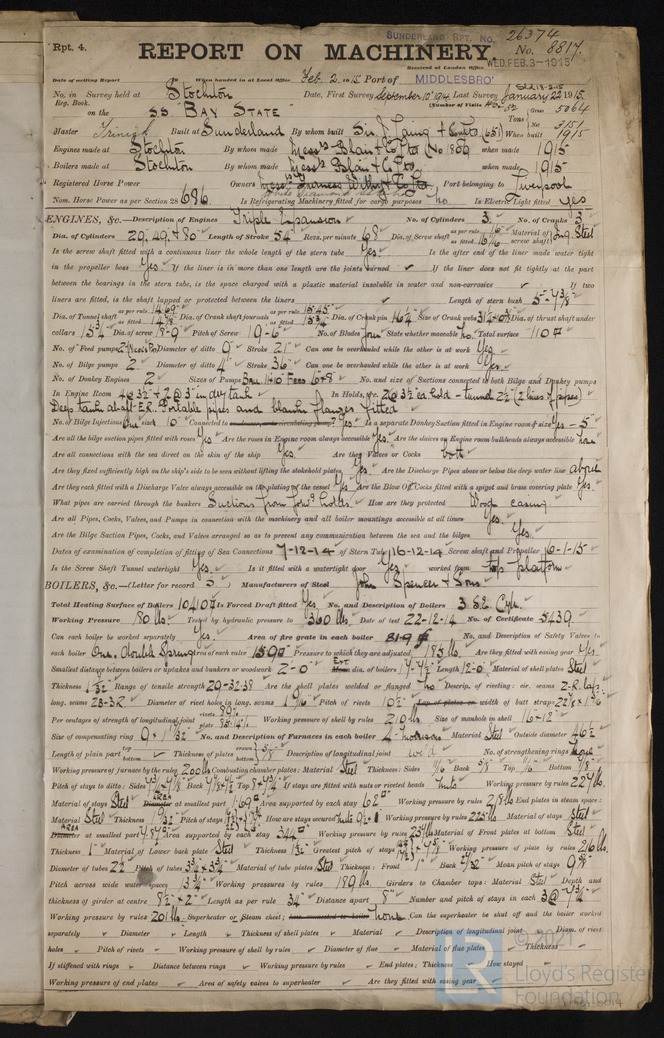 SUNDERLAND RPT. No. 26374
Rpt. 4.
REPORT ON MACHINERY.
No. 8817.
Received at London Office WED. FEB. 3 - 1915
Date of writing Report When handed in at Local Office Feb. 2 1915 Port of MIDDLESBRO'
No. in Survey held at Stockton Date, First Survey September 10th 1914 Last Survey January 22 1915
Reg. Book. (Number of Visits
on the S.S. "BAY STATE" Tons Gross 5064
Net 3151
Master Trinick Built at Sunderland By whom built Sir J. Laing & Sons Ltd When built 1915
Engines made at Stockton By whom made Messrs Blair & Co Ltd (No 1809 when made 1915
Boilers made at Stockton By whom made Messrs Blair & Co Ltd when made 1915
Registered Horse Power Owners Messrs Furness Withy & Co Ltd Port belonging to Liverpool
Nom. Horse Power as per Section 28 686 Is Refrigerating Machinery fitted for cargo purposes No Is Electric Light fitted Yes
ENGINES, &c.—Description of Engines Triple Expansion No. of Cylinders 3 No. of Cranks 3
Dia. of Cylinders 29, 49, & 80" Length of Stroke 54" Revs. per minute 68 Dia. of Screw shaft as per rule as fitted Material of screw shaft Ing. Steel
Is the screw shaft fitted with a continuous liner the whole length of the stern tube Yes Is the after end of the liner made water tight
in the propeller boss Yes If the liner is in more than one length are the joints burned If the liner does not fit tightly at the part
between the bearings in the stern tube, is the space charged with a plastic material insoluble in water and non-corrosive If two
liners are fitted, is the shaft lapped or protected between the liners Length of stern bush 5'-4 3/8"
Dia. of Tunnel shaft as per rule 14.69 as fitted 14 7/8 Dia. of Crank shaft journals as per rule 15.45 as fitted 15 3/4 Dia. of Crank pin 16 1/4" Size of Crank webs Dia. of thrust shaft under
collars 15 3/4 Dia. of screw 18-9 Pitch of Screw 19-6 No. of Blades four State whether moveable No Total surface 110
No. of Feed pumps Diameter of ditto 9" Stroke 21" Can one be overhauled while the other is at work Yes
No. of Bilge pumps 2 Diameter of ditto 4" Stroke 36" Can one be overhauled while the other is at work Yes
No. of Donkey Engines 2 Sizes of Pumps No. and size of Suctions connected to both Bilge and Donkey pumps
In Engine Room 4 @ 3 1/2 + 2 @ 3 in dry tank In Holds, &c. 2 @ 3 1/2 ea hold - tunnel 2 1/2 (2 lines of pipes)
Deep tank abaft E.R. Portable pipes and blank flanges fitted
No. of Bilge Injections One size 10" Connected to Yes Is a separate Donkey Suction fitted in Engine room & size Yes - 5"
Are all the bilge suction pipes fitted with roses Yes Are the roses in Engine room always accessible Yes Are the sluices on Engine room bulkheads always accessible
Are all connections with the sea direct on the skin of the ship Yes Are they Valves or Cocks both
Are they fixed sufficiently high on the ship's side to be seen without lifting the stokehold plates Yes Are the Discharge Pipes above or below the deep water line above
Are they each fitted with a Discharge Valve always accessible on the plating of the vessel Yes Are the Blow Off Cocks fitted with a spigot and brass covering plate Yes
What pipes are carried through the bunkers Suctions from forwd holds How are they protected Wood casing
Are all Pipes, Cocks, Valves, and Pumps in connection with the machinery and all boiler mountings accessible at all times Yes
Are the Bilge Suction Pipes, Cocks, and Valves arranged so as to prevent any communication between the sea and the bilges Yes
Dates of examination of completion of fitting of Sea Connections 7-12-14 of Stern Tube 16-12-14 Screw shaft and Propeller 6-1-15
Is the Screw Shaft Tunnel watertight Yes Is it fitted with a watertight door Yes worked from top platform
BOILERS, &c.—(Letter for record S Manufacturers of Steel John Spencer & Sons
Total Heating Surface of Boilers 10410 Is Forced Draft fitted Yes No. and Description of Boilers 3 S.E. Cyl.
Working Pressure 180 lbs. Tested by hydraulic pressure to 360 lbs. Date of test 22-12-14 No. of Certificate 5439
Can each boiler be worked separately Yes Area of fire grate in each boiler No. and Description of Safety Valves to
each boiler One, double Spring Area of each valve Pressure to which they are adjusted 185 lbs. Are they fitted with easing gear Yes
Smallest distance between boilers or uptakes and bunkers or woodwork 2'-0" Ext dia. of boilers 17-4 1/2 Length 12-0 Material of shell plates Steel
Thickness Range of tensile strength 29-32-38 Are the shell plates welded or flanged No Descrip. of riveting: cir. seams 2-R. lap
long. seams Diameter of rivet holes in long. seams 1 9/16" Pitch of rivets 10 1/2 width of butt straps
Per centages of strength of longitudinal joint rivets plate Working pressure of shell by rules 210 lbs Size of manhole in shell 16 x 12"
Size of compensating ring No. and Description of Furnaces in each boiler 4 Morison's Material Steel Outside diameter 46 1/2
Length of plain part top bottom Thickness of plates crown bottom 5/8" Description of longitudinal joint weld No. of strengthening rings None
Working pressure of furnace by the rules 200 lbs Combustion chamber plates: Material Steel Thickness: Sides 11/16 Back 5/8 Top 11/16 Bottom 7/8
Pitch of stays to ditto: Sides Back Top If stays are fitted with nuts or riveted heads Nuts Working pressure by rules
Material of stays Steel AREA at smallest part 1.69 Area supported by each stay 62 Working pressure by rules 218 lbs End plates in steam space:
Material Steel Thickness Pitch of stays How are stays secured Working pressure by rules 225 lbs Material of stays Steel
AREA at smallest part Area supported by each stay 344 Working pressure by rules Material of Front plates at bottom Steel
Thickness 1" Material of Lower back plate Steel Thickness Greatest pitch of stays Working pressure of plate by rules 216 lbs.
Diameter of tubes 2 1/2 Pitch of tubes 3 3/4 x 3 3/4 Material of tube plates Steel Thickness: Front 1" Back Mean pitch of stays
Pitch across wide water spaces 13 3/4 Working pressures by rules 189 lbs. Girders to Chamber tops: Material Steel Depth and
thickness of girder at centre 8 1/2 x 2" Length as per rule 34 Distance apart 8" Number and pitch of stays in each 3 @ 7 3/4"
Working pressure by rules 201 lbs. Superheater or Steam chest; None Can the superheater be shut off and the boiler worked
separately Diameter Length Thickness of shell plates Material Description of longitudinal joint Diam. of rivet
holes Pitch of rivets Working pressure of shell by rules Diameter of flue Material of flue plates Thickness
If stiffened with rings Distance between rings Working pressure by rules End plates: Thickness How stayed
Working pressure of end plates Area of safety valves to superheater Are they fitted with easing gear
© 2021
Lloyd's Register
Foundation